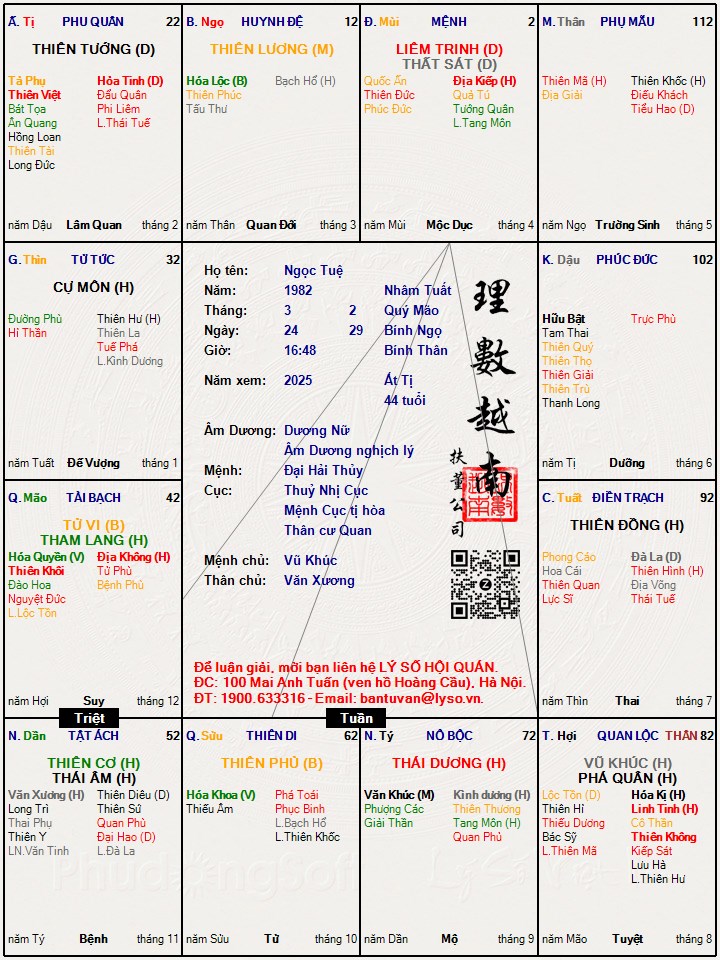 Ấ. Tị PHU QUÂN 22
THIÊN TƯỚNG (D)
Tả Phụ Hỏa Tinh (D)
Thiên Việt Đẩu Quân
Bát Tọa Phi Liêm
Ân Quang L.Thái Tuế
Hồng Loan
Thiên Tài
Long Đức
năm Dậu Lâm Quan tháng 2
B. Ngọ HUYNH ĐỆ 12
THIÊN LƯƠNG (M)
Hóa Lộc (B) Bạch Hổ (H)
Thiên Phúc
Tấu Thư
năm Thân Quan Đới tháng 3
Đ. Mùi MỆNH 2
LIÊM TRINH (D)
THẤT SÁT (D)
Quốc Ấn Địa Kiếp (H)
Thiên Đức Quả Tú
Phúc Đức Tướng Quân
L.Tang Môn
năm Mùi Mộc Dục tháng 4
M. Thân PHỤ MẪU 112
Thiên Mã (H) Thiên Khốc (H)
Địa Giải Điếu Khách
Tiểu Hao (D)
năm Ngọ Trường Sinh tháng 5
G. Thìn TỬ TỨC 32
CỰ MÔN (H)
Đường Phù Thiên Hư (H)
Hỉ Thần Thiên La
Tuế Phá
L.Kình Dương
năm Tuất Đế Vượng tháng 1
Họ tên: Ngọc Tuệ
Năm: 1982 Nhâm Tuất
Tháng: 3 2 Quý Mão
Ngày: 24 29 Bính Ngọ
Giờ: 16:48 Bính Thân
Năm xem: 2025 Ất Tị
44 tuổi
Âm Dương: Dương Nữ
Âm Dương nghịch lý
Mệnh: Đại Hải Thủy
Cục: Thuỷ Nhị Cục
Mệnh Cục tị hòa
Thân cư Quan
Mệnh chủ: Vũ Khúc
Thân chủ: Văn Xương
理數越南
扶董公司
Để luận giải, mời bạn liên hệ LÝ SỐ HỘI QUÁN.
ĐC: 100 Mai Anh Tuấn (ven hồ Hoàng Cầu), Hà Nội.
ĐT: 1900.633316 - Email: bantuvan@lyso.vn.
K. Dậu PHÚC ĐỨC 102
Hữu Bật Trực Phù
Tam Thai
Thiên Quý
Thiên Thọ
Thiên Giải
Thiên Trù
Thanh Long
năm Tị Dưỡng tháng 6
Q. Mão TÀI BẠCH 42
TỬ VI (B)
THAM LANG (H)
Hóa Quyền (V) Địa Không (H)
Thiên Khôi Tử Phù
Đào Hoa Bệnh Phù
Nguyệt Đức
L.Lộc Tồn
năm Hợi Suy tháng 12
C. Tuất ĐIỀN TRẠCH 92
THIÊN ĐỒNG (H)
Phong Cáo Đà La (D)
Hoa Cái Thiên Hình (H)
Thiên Quan Địa Võng
Lực Sĩ Thái Tuế
năm Thìn Thai tháng 7
Triệt
Tuần
N. Dần TẬT ÁCH 52
THIÊN CƠ (H)
THÁI ÂM (H)
Văn Xương (H) Thiên Diêu (D)
Long Trì Thiên Sứ
Thai Phụ Quan Phù
Thiên Y Đại Hao (D)
LN.Văn Tinh L.Đà La
năm Tý Bệnh tháng 11
Q. Sửu THIÊN DI 62
THIÊN PHỦ (B)
Hóa Khoa (V) Phá Toái
Thiếu Âm Phục Binh
L.Bạch Hổ
L.Thiên Khốc
năm Sửu Tử tháng 10
N. Tý NÔ BỘC 72
THÁI DƯƠNG (H)
Văn Khúc (M) Kình dương (H)
Phượng Các Thiên Thương
Giải Thần Tang Môn (H)
Quan Phủ
năm Dần Mộ tháng 9
T. Hợi QUAN LỘC THÂN 82
VŨ KHÚC (H)
PHÁ QUÂN (H)
Lộc Tồn (D) Hóa Kị (H)
Thiên Hỉ Linh Tinh (H)
Thiếu Dương Cô Thần
Bác Sỹ Thiên Không
L.Thiên Mã Kiếp Sát
Lưu Hà
L.Thiên Hư
năm Mão Tuyệt tháng 8